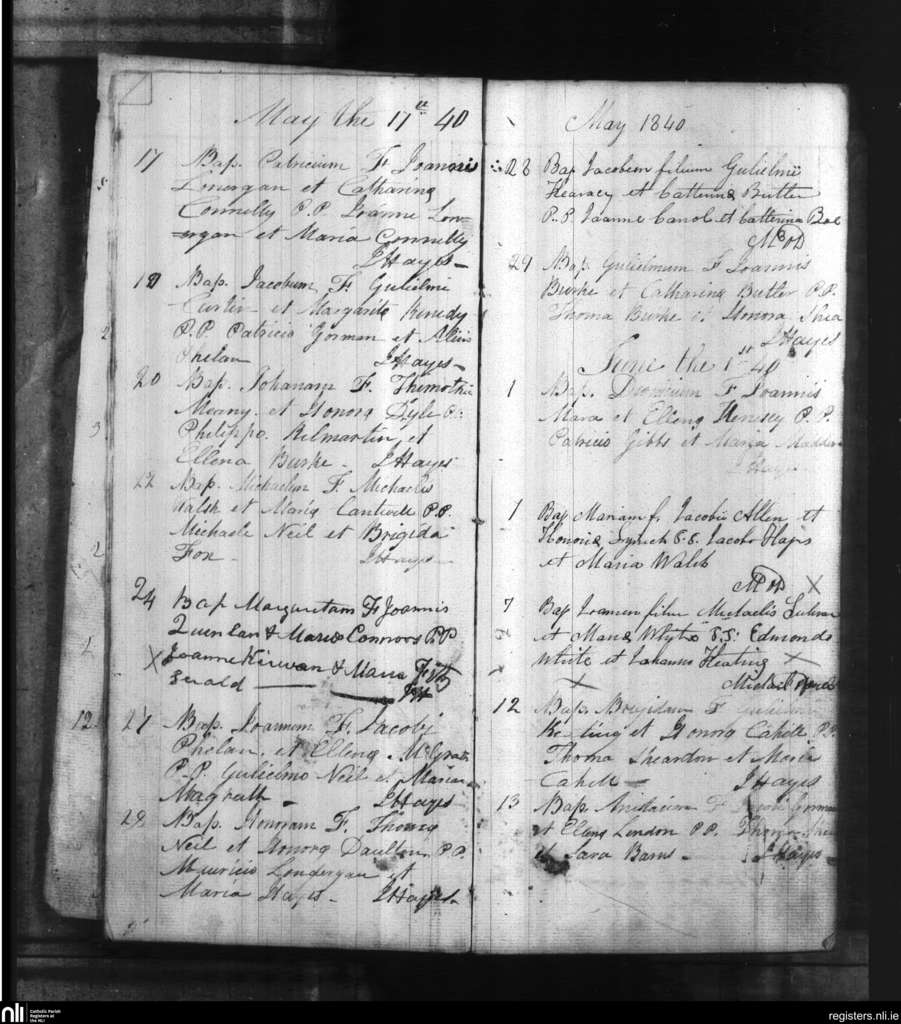 May the 17th 40
17 Bap. Patricium F Joannis
Lonergan et Catharina
Connelly P.P. Joanne Lon-
ergan et Maria Connelly
JHayes
18 Bap. Jacobum F Gulielmi
Curtin et Margarita Kenedy
P.P. Patricio Gorman et
Phelan JHayes
20 Bap. Johanam F. Thimothii
et Honora P.P.
Philippo Kilmartin et
Ellena Burke - JHayes
22 Bap. Michaelem F. Michaelis
Walsh et Maria Cantwell P.P.
Michaele Neil et Brigida
Fox - JHayes
24 Bap Margaretam F Joannis
Quenlan & Maria Connors P.P
X Joanne Kirwan & Maria Fitz
gerald JH
12 27 Bap. Joannem F. Jacobi
Phelan et Ellena McGrath
P.P. Gulielmo Neil et Maria
Magrath - JHayes
28 Bap. Honoram F. Thoma
Neil et Honora Daulton P.P.
Mauricio Londergan et
Maria Hayes - JHayes
May 1840
28 Bap Jacobum filium Gulielmi
et Catterina Butler
P.P. Joanne Carrol et Catterina
MOD
29 Bap. Gulielmum F Joannis
Burke et Catharina Butler P.P.
Thoma Burke et Honora Shea
JHayes
June the 1st 40
1 Bap. F Joannis
Mara et Ellena P.P.
Patricio Gibbs et Maria Madden
JHayes
1 Bap Mariam f. Jacobi Allen et
Honora Lynch S.S. Jacobo Hays
et Maria Walsh
MOD X
7 Bap Joannem filium Michaelis
et Maria Whyte S.S. Edmondo
White et Johanna Keating X
X
12 Bap. Brigidam F
Keating et Honora Cahill P.P.
Thoma et Maria
Cahill - JHayes
13 Bap. F Gorman
et Ellena London P.P. Thoma
et Sara Barns - JHayes
nli
Catholic Parish
Registers at
the NLI
registers.nli.ie